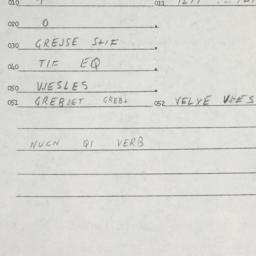 010
011
020 0
030 GREJSE STIF
040 TIF EQ
050 WESLES
051 GREBJET GREBT 052 VELYE
NUCN QI VERB